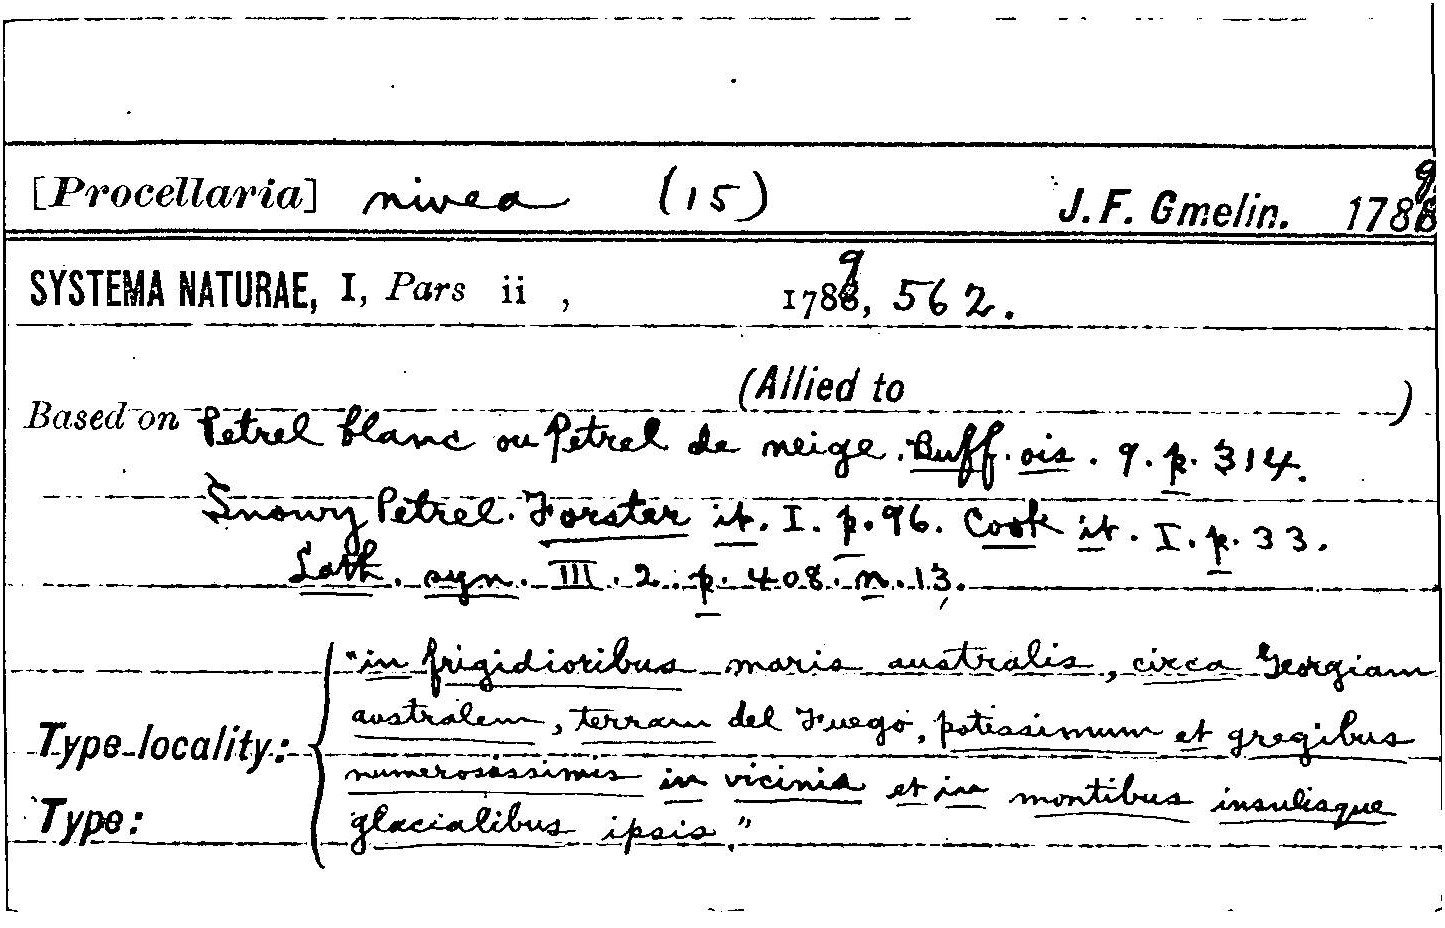 [Procellaria] nivea (15) J. F. Gmelin. 1789
SYSTEMA NATURAE, I, Pars ii , 1789, 562.
(Allied to )
Based on Petrel blanc ou Petrel de neige. Buff. ois. 9. p. 314.
Snowy Petrel. Forster it. I. p. 96. Cook it. I. p. 33.
Lath. syn. III. 2. p. 408. n. 13.
"in frigidioribus maris australis, circa Georgiam
australem, terram del Fuego, potissimum et gregibus
Type-locality:
numerosissimis in vicinia et in montibus insulisque
Type: glacialibus ipsis."